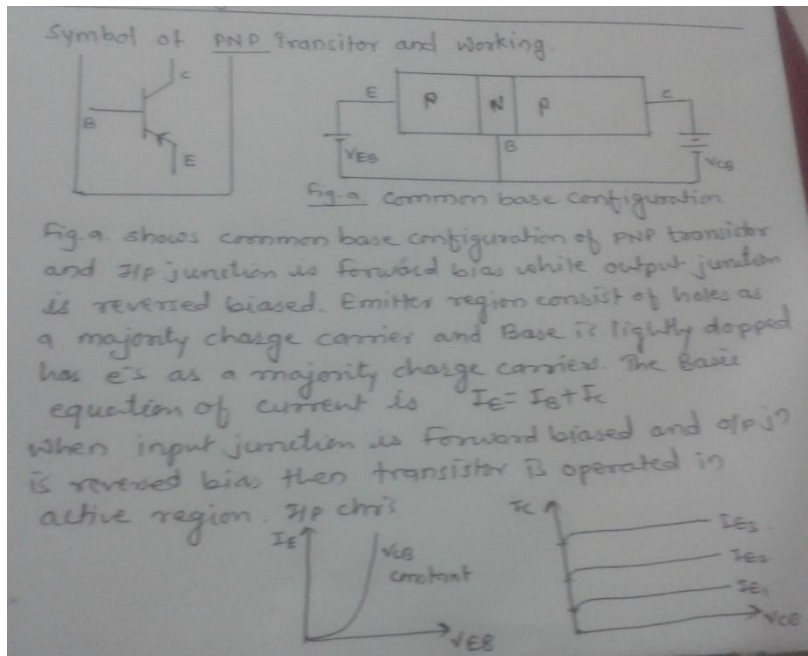 Symbol of PNP Transitor and working
C
B
E
E P N P C
B
VEB
VCB
Fig.a. Common base Configuration
Fig.a. shows common base configuration of PNP transistor
and I/p junction is forward bias while output junction
is reversed biased. Emitter region consist of holes as
a majority charge carrier and Base is lightly dopped
has e's as a majority charge carriers. The Basic
equation of current is IE = IB + IC
when input junction is forward biased and o/p jn
is reversed bias then transistor is operated in
active region. I/P chr's
IE
VCB
constant
VEB
IC
IE3
IE2
IE1
VCE